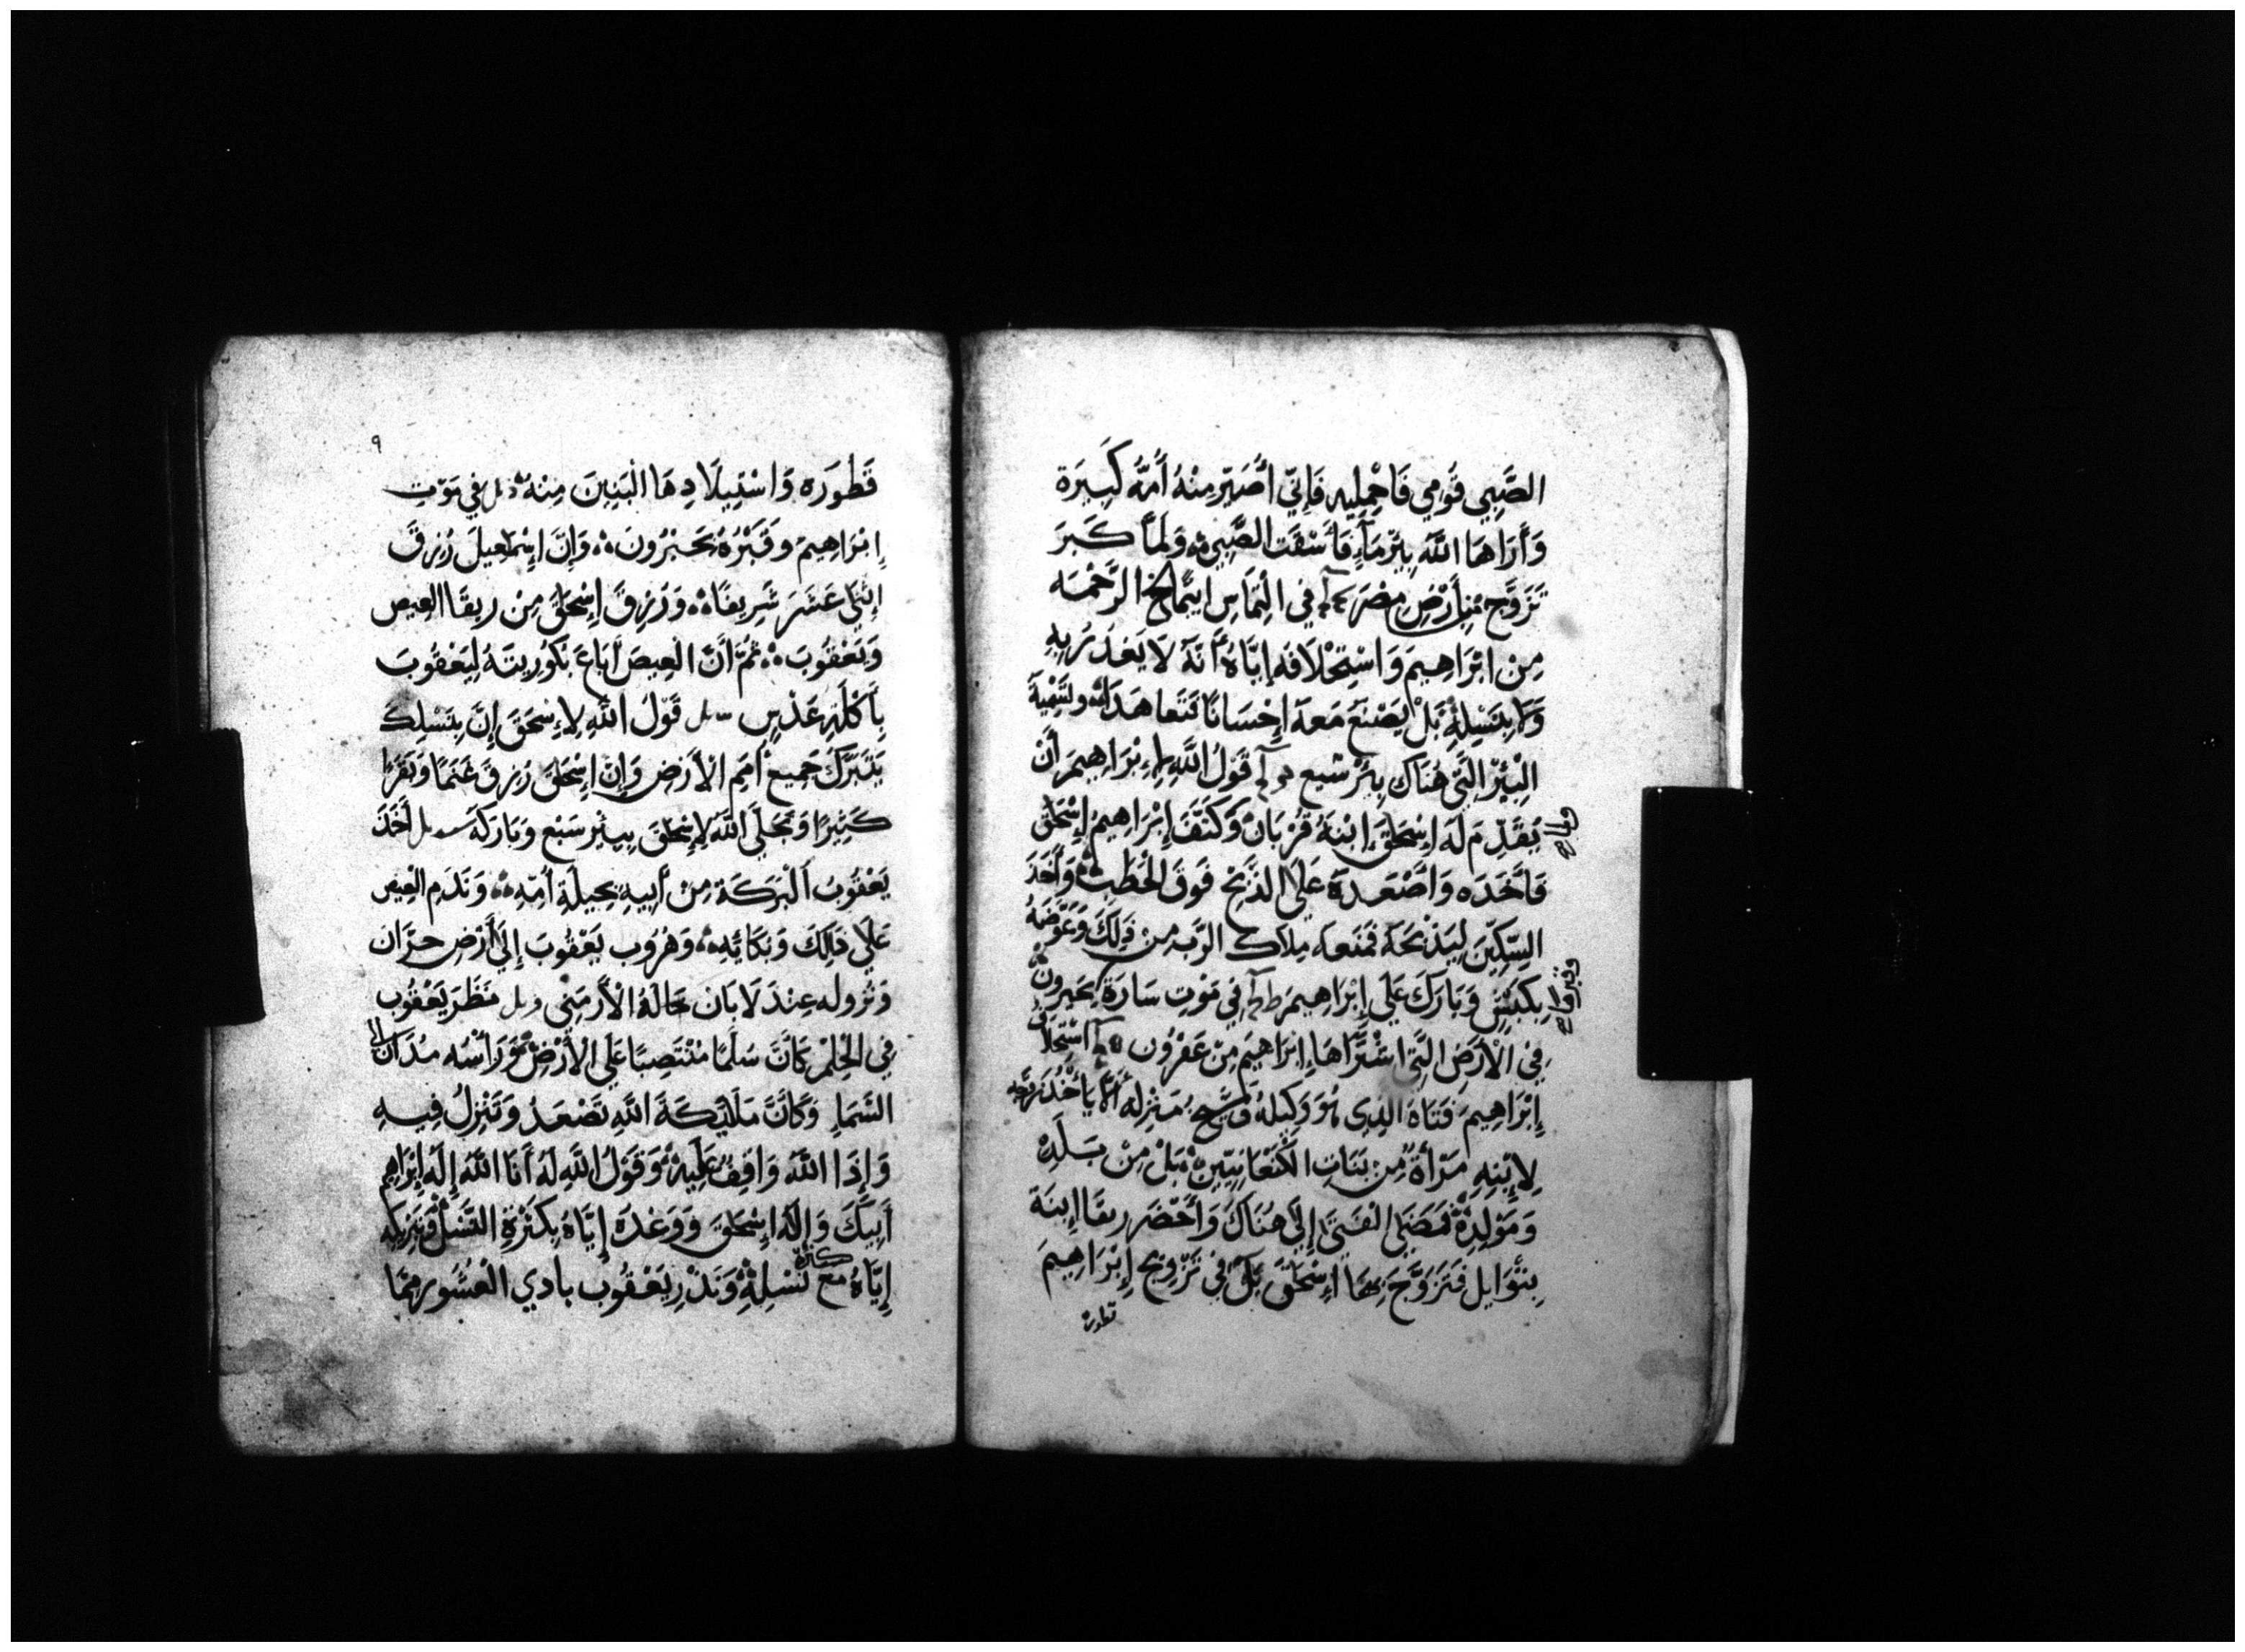 الصَّبِي قُومِي فَاحْمِلِيهِ فَإِنِّي أُصَيِّر مِنْهُ أُمَّه كَبِيَرة
وَأَرَاهَا اللَّهُ بِئْر مَآءٍ فَأَسْقَت الصَّبِي وَلَمَّا كَبَرَ
تَزَوَّج مِن أَرْضِ مِصْرَ في الْتِمَاسِ ابيمالخ الرَّحْمَه
مِنْ ابْرَاهِيمَ وَاسْتِحْلَافَه إِيَّاهُ أَنَّهُ لَا يَغدَرُ بِهِ
وَلَا بِنَسْلِهِ بَلْ يَصْنَعَ مَعهَ إِحْسَانًا فَتَعاهَدَا وتسْمِيَة
الْبِئْر الَّتِي هُنَاك بِئْر شبع قَوْلُ اللَّهِ لِإِبْرَاهِيمَ أَنْ
يُقَدِّم لَه إِسْحَقَ ابْنهُ قُرْبَان وَكَتَّفَ إِبْرَاهِيمُ إِسْحَقَ
فَأَخَدَه وَاصْعَدهَ عَلَى الذَّبْح فَوق الْحَطَبِ وَأَخَدَ
السِّكِّينَ لِيَذْبَحَهُ فَمَنَعه مِلَاك الرَّب مِن ذَلِكَ وَعَوَّضَهُ
بِكَبْشٍ وَبَارَكَ عَلَى إِبْرَاهِيمَ في مَوْتِ سَارَة بحبرون
فِي الْأَرْضِ الَّتِي اشْتَرَاهَا إِبْرَاهِيم مِنْ عَفْرُون اسْتحْلَاف
إِبْرَاهِيمَ فَتَاهُ الَّذِي هُوَ وَكِيلهُ مَنْزِله أَلَّا يَأْخُذ
لِابْنِهِ مَرْأَة مِنْ بَنَاتِ الْكَنْعَانِيِّينَ بَلْ مِنْ بَلَدِهْ
وَمَوْلِدِه فَمَضَى الْفَتَى إِلَى هُنَاكَ وَأَحْضَر ربقا ابنَة
بِتُوَايل فَتَزَوَّجَ بِهَا إِسْحَقَ في تَزْوِيج إِبْرَاهِيمَ
قطوره
٩
قَطُورَه وَاسْتِيلَادِهَا الْبَنِينَ مِنْهُ في مَوْت
إِبْرَاهِيمَ وَقَبْرُهُ بحَبْرُونَ وَإِنَّ إِسْمَعِيلَ رُزِقَ
اثْنَي عَشَرَ شَرِيفًا وَرُزِقَ إِسْحَقُ مِنْ ربقَا العِيص
وَيَعْقُوبَ ثُمَّ أَنَّ الْعِيصَ أَبَاعَ بَكُورِيتَهُ لِيَعْقُوبَ
بِأَكْلَةِ عَدْسٍ قَوْلُ اللَّهِ لِإِسْحَقَ إِنَّ بِنَسْلِكَ
يَتَبَرَّكُ جَمِيع أُمَمِ الْأَرْضِ وَإِنَّ إِسْحَقَ رُزِقَ غَنَمًا وَبَقَرًا
كَثِيرًا وَتَجَلَّى اللَّهُ لِإِسْحَقَ بِبِئْر سَبْع وَبَارَكَه أَخَذَ
يَعْقُوبُ الْبَرَكَة مِنْ أَبِيهِ بِحِيلَةِ أُمِّهِ وَنَدَمِ الْعِيص
عَلَى ذَلِكَ وَبَكَائِهِ وَهُرُوب يَعْقُوبَ إِلَى أَرْضِ حرَّان
وَنُزُوله عِنْدَ لَابَان خَالهُ الْأَرْمَنِي نَظَرَ يَعْقُوب
فِي الْحُلمْ كَأَنَّ سُلَّمًا مُنْتَصِبًا عَلَى الْأَرْضِ وَرَأْسُه مُدَان إلى
السَّمَاءِ وَكَأَنَّ مَلَائِكَةَ اللَّهِ تَصْعَدُ وَتَنْزِلُ فِيهِ
وَإِذَا اللَّهُ وَاقِفٌ عَلَيهْ وَقَوْلُ اللَّهِ لَهُ أَنَا اللَّهُ إِلَهُ إِبْرَاهِيم
أَبِيكَ وَإِلَهُ إِسْحَقَ وَوَعْدَه إِيَّاهُ بِكَثْرَةِ النَّسْل وَتبْريكه
إِيَّاهُ مَعَ كثرة نَسْلِهِ وَنَذْرِ يَعْقُوب بأدي الْعُشُور مِمَّا